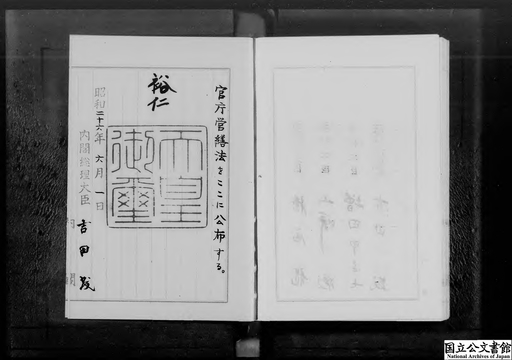 官庁営繕法をここに公布する。
裕仁
天皇
御璽
昭和二十六年六月一日
内閣総理大臣 吉田茂
国立公文書館
National Archives of Japan